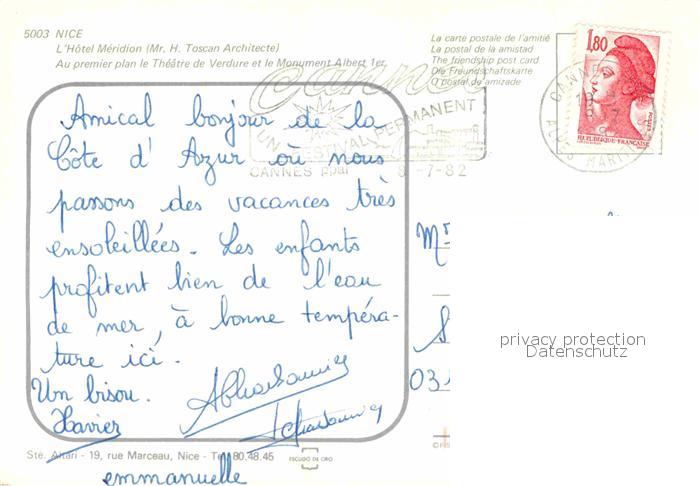 5003 NICE
L'Hôtel Méridion (Mr. H. Toscan Architecte)
Au premier plan le Théâtre de Verdure et le Monument Albert 1er.
La carte postale de l'amitié
La postal de la amistad
The friendship post card
Die Freundschaftskarte
O postal de amizade
1,80
REPUBLIQUE FRANCAISE
CANNES
ALPES MARITIMES
Cannes
UN FESTIVAL PERMANENT
CANNES ppal 8-7-82
Amical bonjour de la
Côte d'Azur où nous
passons des vacances très
ensoleillées. Les enfants
profitent bien de l'eau
de mer, à bonne tempéra-
ture ici.
Un bisou.
Xavier
emmanuelle
Mr
S
03
privacy protection
Datenschutz
Ste. Altari - 19, rue Marceau, Nice - Tel. 80.48.45
ESCUDO DE ORO